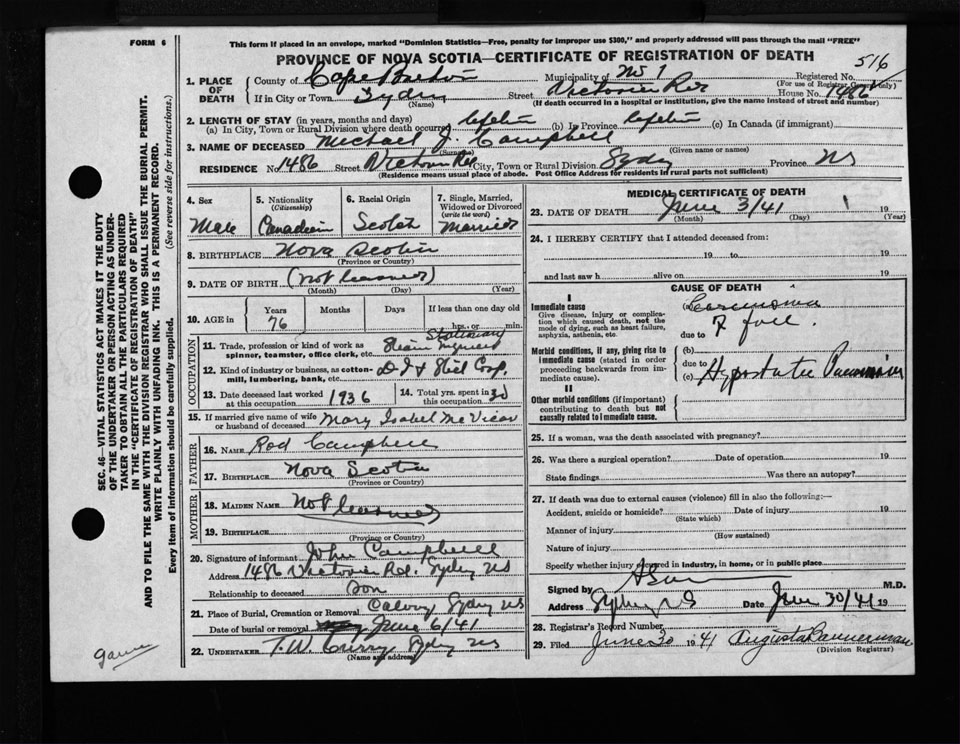 FORM 6
This form if placed in an envelope, marked "Dominion Statistics—Free, penalty for improper use $300," and properly addressed will pass through the mail "FREE"
PROVINCE OF NOVA SCOTIA—CERTIFICATE OF REGISTRATION OF DEATH
516
1. PLACE OF DEATH
County of Cape Breton Municipality of No 1 Registered No.
(For use of Registrar Only)
If in City or Town Sydney Street Victoria Rd House No. 1486
(Name) (If death occurred in a hospital or institution, give the name instead of street and number)
2. LENGTH OF STAY (in years, months and days)
(a) In City, Town or Rural Division where death occurred lifetime (b) In Province lifetime (c) In Canada (if immigrant)
3. NAME OF DECEASED Michael J. Campbell
(Surname) (Given name or names)
RESIDENCE No 1486 Street Victoria Rd City, Town or Rural Division Sydney Province NS
(Residence means usual place of abode. Post Office Address for residents in rural parts not sufficient)
4. Sex Male
5. Nationality (Citizenship) Canadian
6. Racial Origin Scotch
7. Single, Married, Widowed or Divorced (write the word) Married
8. BIRTHPLACE Nova Scotia
(Province or Country)
9. DATE OF BIRTH (Not learned)
(Month) (Day) (Year)
10. AGE in Years 76 Months Days If less than one day hrs. or min.
OCCUPATION
11. Trade, profession or kind of work as spinner, teamster, office clerk, etc. Stationary Steam Engineer
12. Kind of industry or business, as cotton-mill, lumbering, bank, etc. D. I & Steel Corp.
13. Date deceased last worked at this occupation 1936
14. Total yrs. spent in this occupation 30
15. If married give name of wife or husband of deceased Mary Isabel McVicar
FATHER
16. NAME Rod Campbell
17. BIRTHPLACE Nova Scotia
(Province or Country)
MOTHER
18. MAIDEN NAME Not learned
19. BIRTHPLACE
(Province or Country)
20. Signature of informant John Campbell
Address 1486 Victoria Rd. Sydney NS
Relationship to deceased Son
21. Place of Burial, Cremation or Removal Calvary Sydney NS
Date of burial or removal June 6/41
22. UNDERTAKER T.W. Curry Sydney NS
(Name and address)
MEDICAL CERTIFICATE OF DEATH
23. DATE OF DEATH June 3/41 19
(Month) (Day) (Year)
24. I HEREBY CERTIFY that I attended deceased from:
19 to 19
and last saw h alive on 19
CAUSE OF DEATH
I
Immediate cause
Give disease, injury or complication which caused death, not the mode of dying, such as heart failure, asphyxia, asthenia, etc
(a) Carcinoma
due to
Morbid conditions, if any, giving rise to immediate cause (stated in order proceeding backwards from immediate cause).
(b)
due to
(c) Hypostatic Pneumonia
II
Other morbid conditions (if important) contributing to death but not causally related to immediate cause.
25. If a woman, was the death associated with pregnancy?
26. Was there a surgical operation? Date of operation 19
State findings Was there an autopsy?
27. If death was due to external causes (violence) fill in also the following:—
Accident, suicide or homicide? Date of injury 19
(State which)
Manner of injury
(How sustained)
Nature of injury
Specify whether injury occurred in industry, in home, or in public place
Signed by M.D.
Address Sydney NS Date June 30/41 19
28. Registrar's Record Number
29. Filed June 30 1941 Augusta Bannerman
(Division Registrar)
SEC. 46—VITAL STATISTICS ACT MAKES IT THE DUTY
OF THE UNDERTAKER OR PERSON ACTING AS UNDER-
TAKER TO OBTAIN ALL THE PARTICULARS REQUIRED
IN THE "CERTIFICATE OF REGISTRATION OF DEATH"
AND TO FILE THE SAME WITH THE DIVISION REGISTRAR WHO SHALL ISSUE THE BURIAL PERMIT.
WRITE PLAINLY WITH UNFADING INK. THIS IS A PERMANENT RECORD.
Every item of information should be carefully supplied. (See reverse side for instructions.)